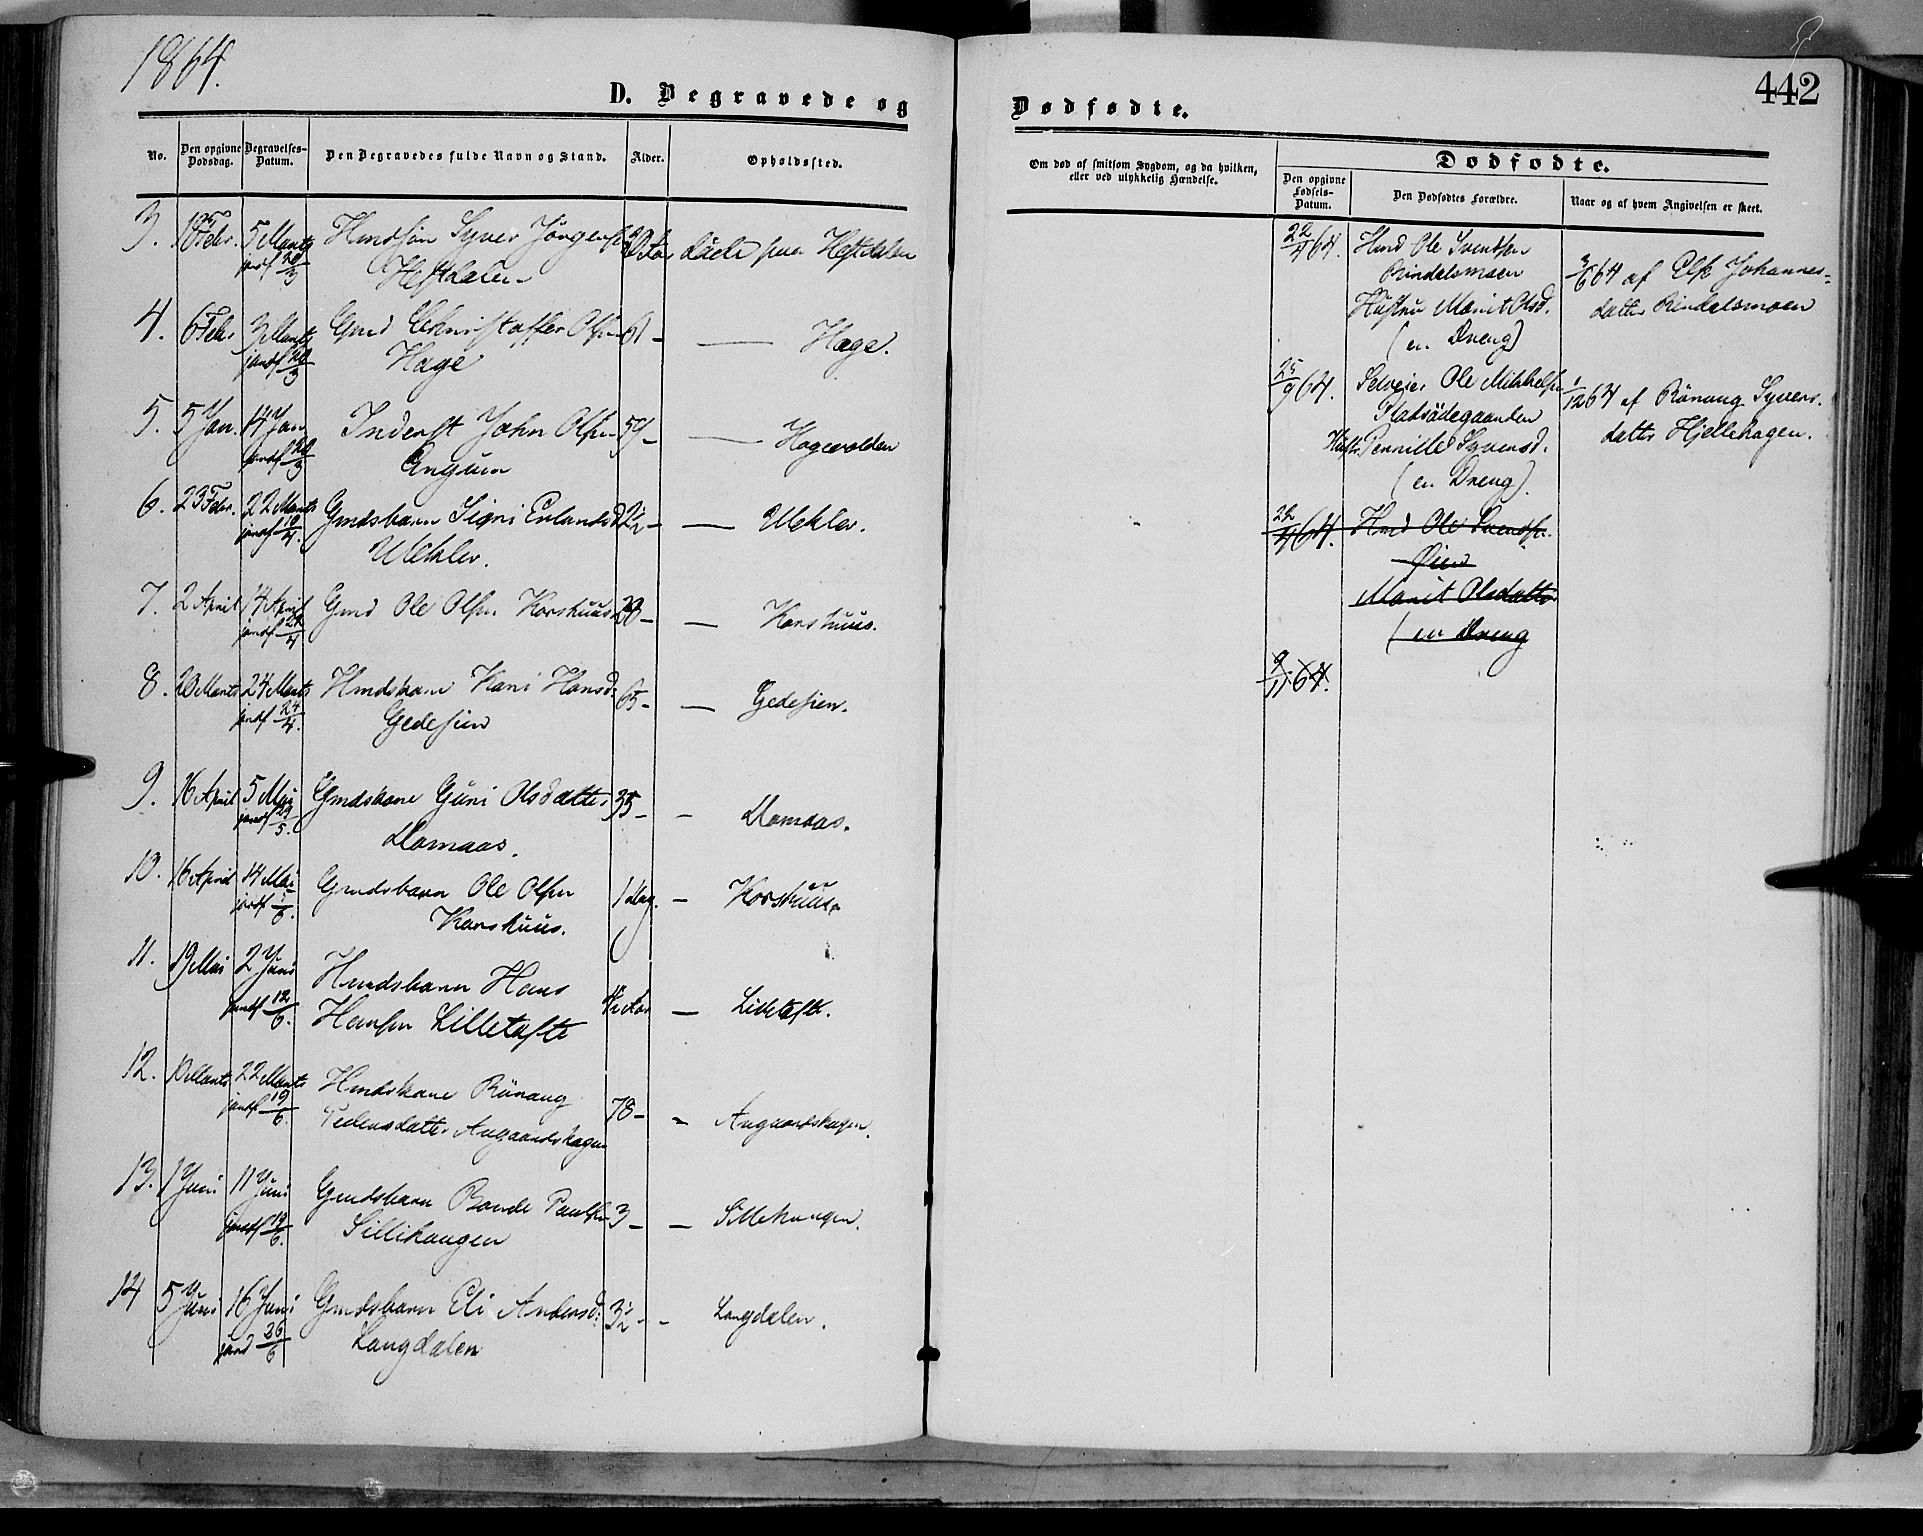 1864.
442
D. Begravede og
Dødfødte.
No.
Den opgivne Dødsdag.
Begravelses-Datum.
Den Begravedes fulde Navn og Stand.
Alder.
Opholdssted.
Om død af smitsom Sygdom, og da hvilken,
eller ved ulykkelig Hændelse.
Dødfødte.
Den opgivne Fødsels-Datum.
Den Dødfødtes Forældre.
Naar og af hvem Angivelsen er skeet.
3. Febr. 5 Marts Syver Jörgens. Aar døde paa Heftdalen
jordf 28/3 Heftdalen
4. 6 Febr. 3 Marts Gmd Christoffer Olsen 61 - — Hage.
jordf 28/3 Hage
5. 5 Jan. 14 Jan Inderst John Olsen 59 - — Hagevolden
jordf 28/3 Angum
6. 23 Febr. 22 Marts Gmdsbarn Signi Erlandsd. 2½ - — Uekler.
jordf 10/4. Uekler.
7. 2 April 14 April Gmd Ole Olsen Korshuus - — Korshuus.
jordf 24/4
8. 20 Marts 24 Marts Hmdskone Kari Hansd. 65 - — Gedesien.
jordf 24/4. Gedesien
9. 16 April 5 Mai Gmdskone Guni Olsdatter 35 - - Domaas.
jordf 29/5. Domaas.
10. 16 April 14 Mai Gmdsbarn Ole Olsen 1 Dag. - Korshuus.
jordf Korshuus.
11. 19 Mai 2 Juni Hmdsbarn Hans
jordf 12/6. Hansen Lilletofte Aar — Liletofte.
12. 10 Marts 22 Marts Hmdskone Rönaug 78 - - Angaardshagen.
jordf 19/6. Pedersdatter Angaardshagen
13. 1 Juni 11 Juni Gmdsbarn Baarde Paulsen 3 - — Sillihaugen.
jordf 19/6. Sillihaugen
14 5 Juni 16 Juni Gmdsbarn Eli Andersd. 3½ - - Langdalen.
jord 26/6 Langdalen
22/4 64. Hmd Ole Svendsen
Rindalsmoen
Hustru Marit Olsd.
(en Dreng)
3/6 64 af Else Johannes-
datter Rindalsmoen
25/9 64. Selveier Ole Mikkelsen
Pladsödegaarden
Hustr. Pernille Syversd.
(en Dreng).
1/12 64 af Rönaug Syvers.
datter Hjellehagen.
22/4 64. Hmd Ole Svendsen
Öien
Marit Olsdatter
(en Dreng
9/11 64.